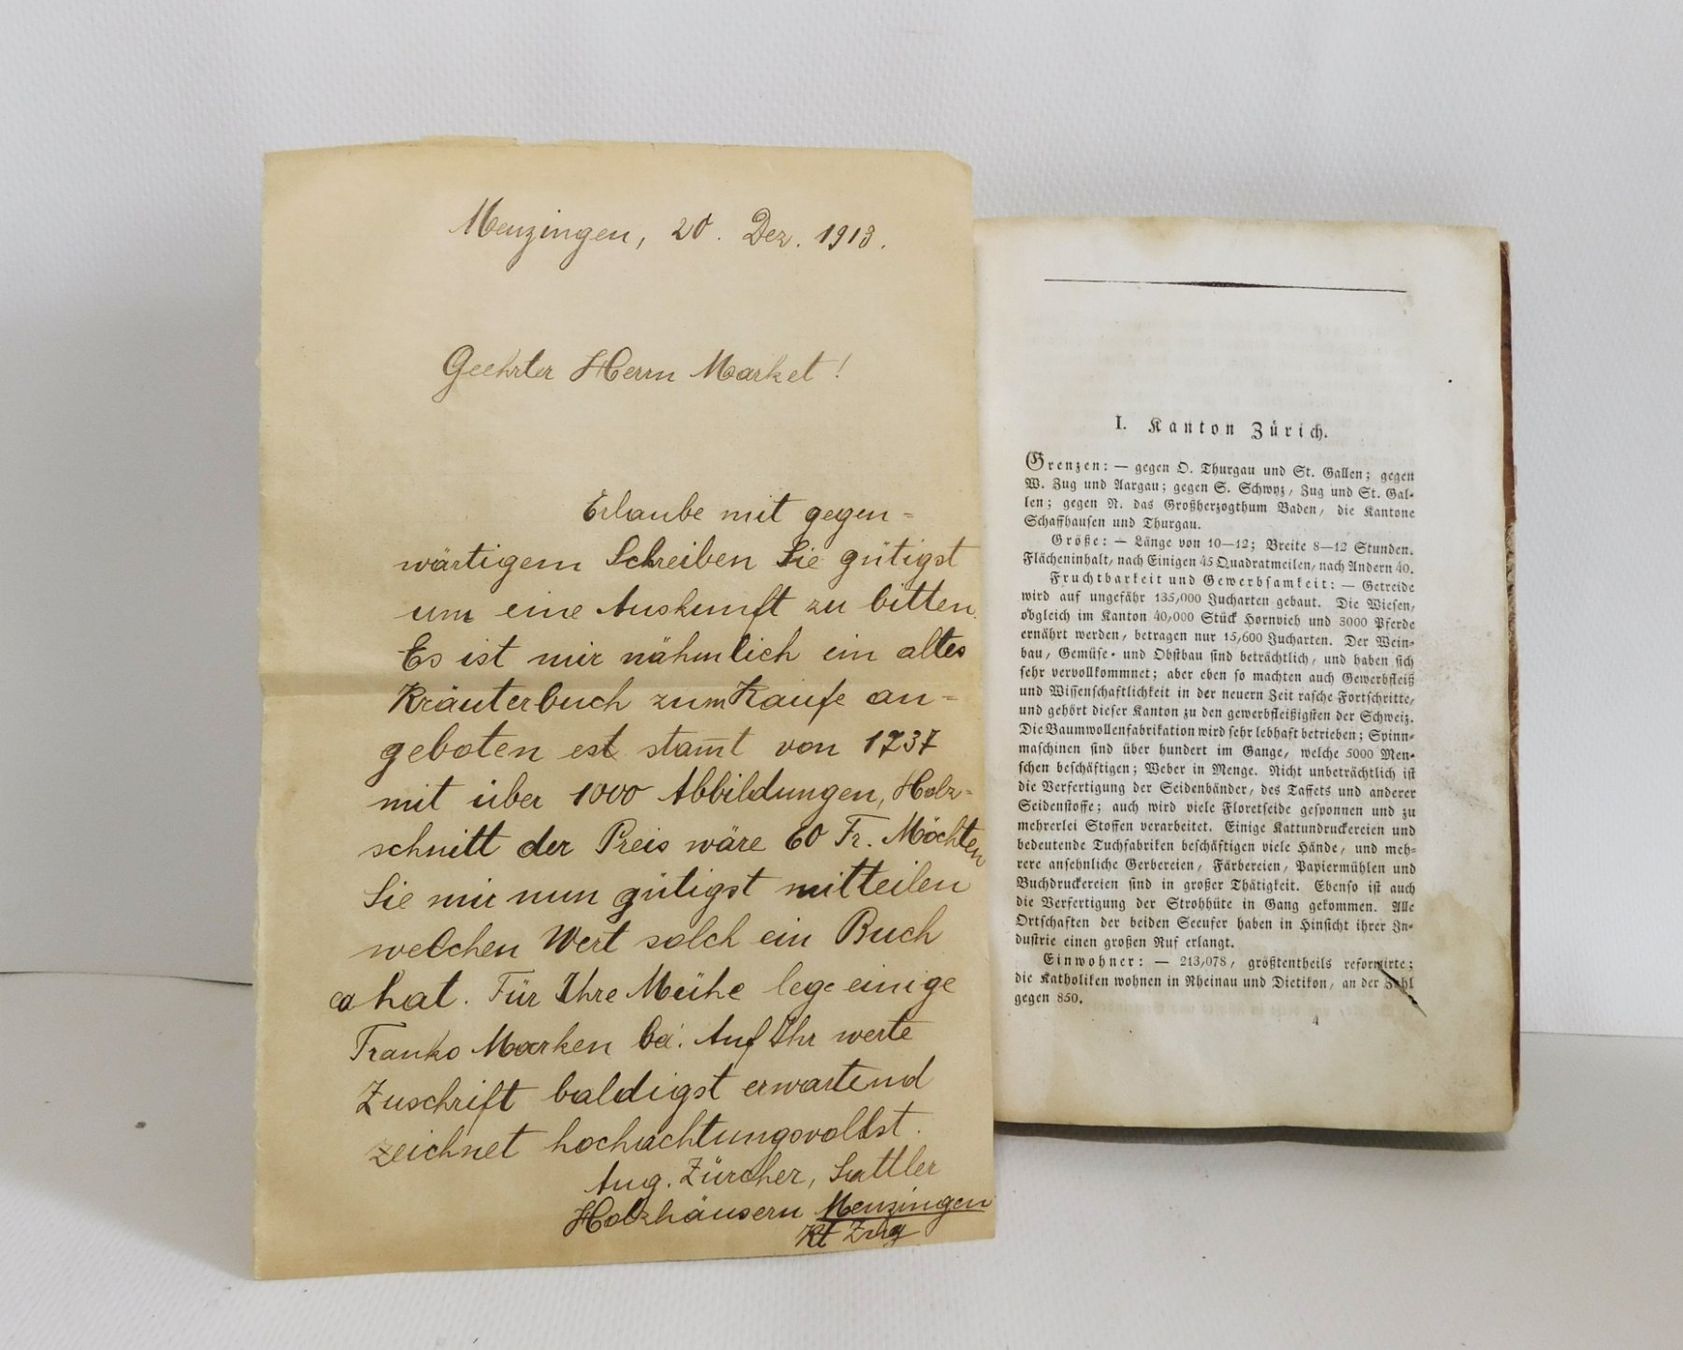 Menzingen, 20. Dez. 1913.
Geehrter Herrn Market!
Erlaube mit gegen=
wärtigem Schreiben Sie gütigst
um eine Auskunft zu bitten.
Es ist mir nähmlich ein altes
Kräuterbuch zum Kaufe an=
geboten est stam̅t von 1737
mit über 1000 Abbildungen, Holz=
schnitt der Preis wäre 60 Fr. Möchten
Sie mir nun gütigst mitteilen
welchen Wert solch ein Buch
ca hat. Für Ihre Mühe lege einige
Franko Marken bei. Auf Ihr werte
Zuschrift baldigst erwartend
zeichnet hochachtungsvollst.
Aug. Zürcher, Sattler
Holzhäusern Menzingen
Kt Zug
I. Kanton Zürich.
Grenzen: — gegen O. Thurgau und St. Gallen; gegen
W. Zug und Aargau; gegen S. Schwyz, Zug und St. Gal-
len; gegen N. das Großherzogthum Baden, die Kantone
Schaffhausen und Thurgau.
Größe: — Länge von 10—12; Breite 8—12 Stunden.
Flächeninhalt, nach Einigen 45 Quadratmeilen, nach Andern 40.
Fruchtbarkeit und Gewerbsamkeit: — Getreide
wird auf ungefähr 135,000 Jucharten gebaut. Die Wiesen,
obgleich im Kanton 40,000 Stück Hornvieh und 3000 Pferde
ernährt werden, betragen nur 15,600 Jucharten. Der Wein-
bau, Gemüse- und Obstbau sind beträchtlich, und haben sich
sehr vervollkommnet; aber eben so machten auch Gewerbsfleiß
und Wissenschaftlichkeit in der neuern Zeit rasche Fortschritte,
und gehört dieser Kanton zu den gewerbsfleißigsten der Schweiz.
Die Baumwollenfabrikation wird sehr lebhaft betrieben; Spinn-
maschinen sind über hundert im Gange, welche 5000 Men-
schen beschäftigen; Weber in Menge. Nicht unbeträchtlich ist
die Verfertigung der Seidenbänder, des Taffets und anderer
Seidenstoffe; auch wird viele Floretseide gesponnen und zu
mehrerlei Stoffen verarbeitet. Einige Kattundruckereien und
bedeutende Tuchfabriken beschäftigen viele Hände, und meh-
rere ansehnliche Gerbereien, Färbereien, Papiermühlen und
Buchdruckereien sind in großer Thätigkeit. Ebenso ist auch
die Verfertigung der Strohhüte in Gang gekommen. Alle
Ortschaften der beiden Seeufer haben in Hinsicht ihrer In-
dustrie einen großen Ruf erlangt.
Einwohner: — 213,078, größtentheils reformirte;
die Katholiken wohnen in Rheinau und Dietikon, an der Zahl
gegen 850.
4